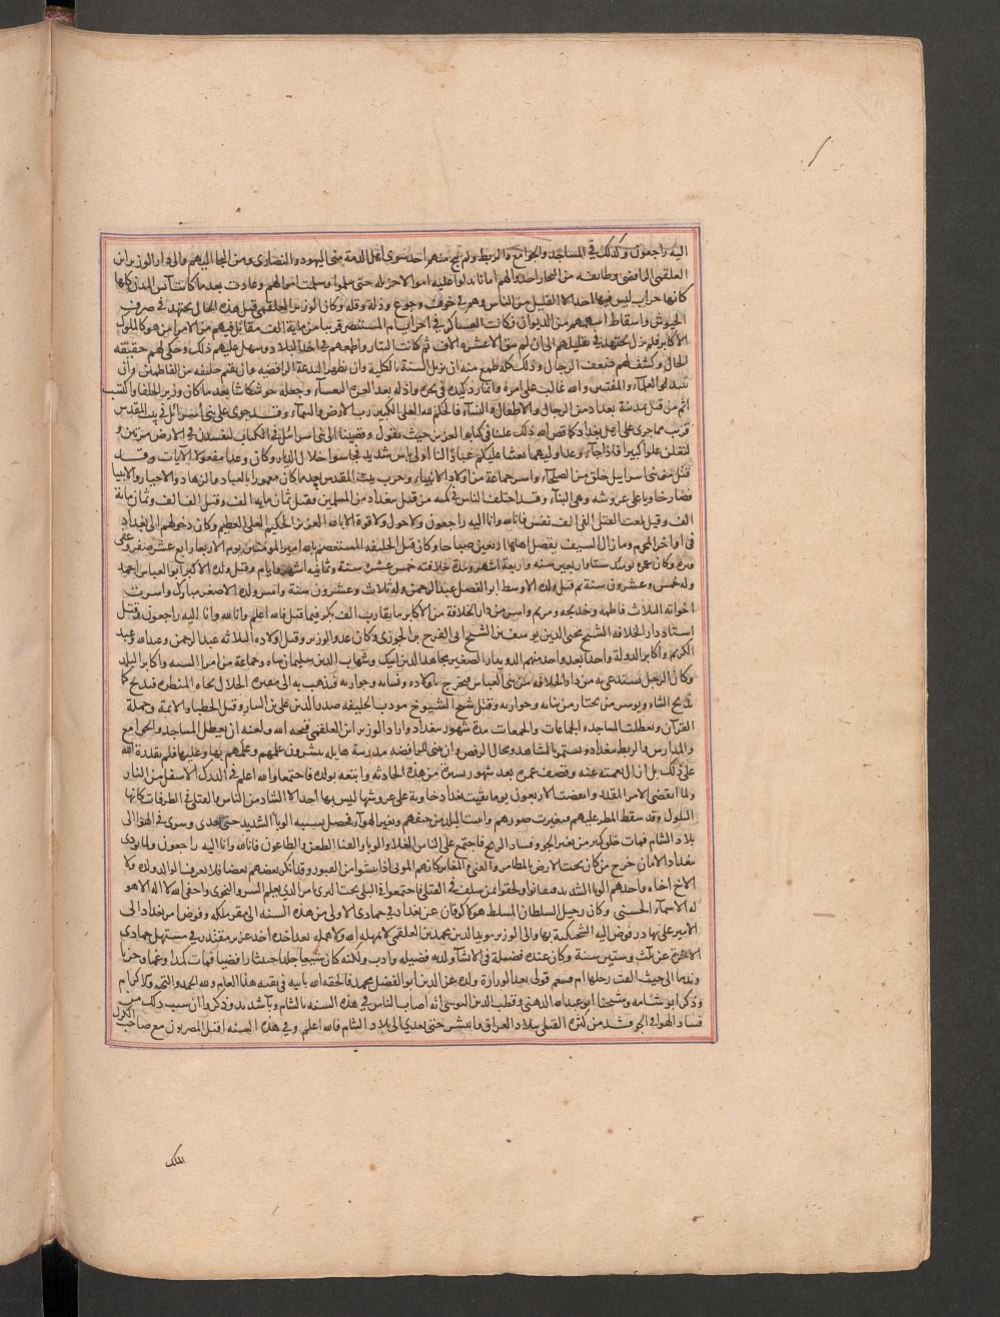 اليه راجعون وكذلك في المساجد والجوامع والربط ولم ينج منهم احد سوى اهل الذمة من اليهود والنصارى ومن التجا اليهم والى دار الوزير ابن
العلقمي الرافضي وطائفه من التجار اخذوا لهم امانا بذلوا عليه اموالا جزيله حتى سلموا وسلمت اموالهم وعادت بغداد بعد ما كانت آنس المدن كلها
كانها خراب ليس فيها احد الا القليل من الناس وهم في خوف وجوع وذلة وقله وكان الوزير ابن العلقمي قبل هذه الحال يجتهد في صرف
الجيوش واسقاط اسمهم من الديوان فكانت العساكر في اخر ايام المستنصر قريبا من ماية الف مقاتل فيهم من الامرا من هو كالملوك
الاكابر فلم يزل يجتهد في تقليلهم الى ان لم يبق الا عشره الاف ثم كاتب التتار واطمعهم في اخذ البلاد وسهل عليهم ذلك وحكى لهم حقيقه
الحال وكشف لهم ضعف الرجال وذلك كله طمعا منه ان يزيل السنة بالكلية وان يظهر البدعة الرافضه وان يقيم خليفه من الفاطميين وان
يبيد العلماء والمفتيين والله غالب على امره وقد رد كيده في نحره واذله بعد العزة القعساء وجعله حوشكاشا بعد ما كان وزير الخلفا واكتسب
اثم من قتل بمدينة بغداد من الرجال والاطفال والنسآء فالحكم لله العلي الكبير رب الارض والسمآء وقد جرى على بني اسرائيل في بيت المقدس
قريب مما جرى على اهل بغداد كما قص الله ذلك علينا في كتابه العزيز حيث يقول وقضينا الى بني اسرائيل في الكتاب لتفسدن في الارض مرتين و
لتعلن علوا كبيرا فاذا جآء وعد اوليهما بعثنا عليكم عبادا لنا اولي باس شديد فجاسوا خلال الديار وكان وعدا مفعولا الآيات وقد
قتل من بني اسرائيل خلق من الصلحآء واسر جماعة من اولاد الانبيآء وخرب بيت المقدس بعد ما كان معمورا بالعباد والزهاد والاحبار والانبيا
فصار خاويا على عروشه وهي البنآء وقد اختلف الناس في كميه من قتل ببغداد من المسلمين فقيل ثمان ماية الف وقيل الف الف وثمان ماية
الف وقيل بلغت القتلى الفي الف نفس فانا لله وانا اليه راجعون ولا حول ولا قوة الا بالله العزيز الحكيم العلي العظيم وكان دخولهم الى بغداد
في اواخر المحرم وما زال السيف يقتل اهلها اربعين صباحا وكان قتل الخليفه المستعصم بالله امير المومنين يوم الاربعا رابع عشر صفر وعفي
قبره وكان عمره يوميذ ستا واربعين سنه واربعة اشهر ومدة خلافته خمس عشرة سنة وثمانيه اشهر وايام وقتل ولده الاكبر ابو العباس احمد
وله خمس وعشرون سنة ثم قتل ولده الاوسط ابو الفضل عبد الرحمن وله ثلاث وعشرون سنة واسر ولده الاصغر مبارك واسرت
اخواته الثلاث فاطمه وخديجه ومريم واسر من دار الخلافة من الابكار ما يقارب الف بكر فيما قيل فالله اعلم وانا لله وانا اليه راجعون وقتل
استاد دار الخلافه الشيخ محيي الدين يوسف بن الشيخ ابي الفرج بن الجوزي وكان عدو الوزير وقتل اولاده الثلاثه عبد الرحمن وعبد الله وعبد
الكريم واكابر الدولة واحدا بعد واحد منهم الدويدار الصغير مجاهد الدين ايبك وشهاب الدين سليمان شاه وجماعة من امرا السنه واكابر البلد
وكان الرجل يستدعى به من دار الخلافه من بني العباس فيخرج باولاده ونسايه وجواريه فيذهب به الى مقبره الخلال تجاه المنظره فيذبح كما
تذبح الشاه ويوسر من يختار من بناته وجواريه وقتل شيخ الشيوخ مودب الخليفه صدر الدين علي بن النيار وقتل الخطبا والائمة وحملة
القرآن وتعطلت المساجد والجماعات والجمعات مدة شهور ببغداد واراد الوزير ابن العلقمي قبحه الله ولعنه ان يعطل المساجد والجوامع
والمدارس والربط ببغداد ويستمر بالمشاهد ومحال الرفض وان يبني للرافضه مدرسة هايله ينشرون علمهم وعلمهم بها وعليها فلم يقدره الله
على ذلك بل ازال نعمته عنه وقصف عمره بعد شهور يسيرة من هذه الحادثه واتبعه بولده فاجتمعا والله اعلم في الدرك الاسفل من النار
ولما انقضى الامر المقدر وانقضت الاربعون يوما بقيت بغداد خاوية على عروشها ليس بها احد الا الشاد من الناس والقتلى في الطرقات كانها
التلول وقد سقط المطر عليهم فتغيرت صورهم وانتنت البلد من جيفهم وتغير الهوآء فحصل بسببه الوبا الشديد حتى تعدى وسرى في الهوا الى
بلاد الشام فمات خلق كثير من تغير الجو وفساد الريح فاجتمع على الناس الغلا والوبا والفنا والطعن والطاعون فانا لله وانا اليه راجعون ولما نودي
ببغداد بالامان خرج من كان تحت الارض بالمطامير والقني والمغاير كانهم الموتى اذا نبشوا من القبور وقد انكر بعضهم بعضا فلا يعرف الوالد ولده ولا
الاخ اخاه واخذهم الوبا الشديد فتفانوا ولحقوا بمن سلف من القتلى فاجتمعوا في البلى تحت الثرى بامر الذي يعلم السر والنجوى واخفى الله لا اله الا هو
له الاسمآء الحسنى وكان رحيل السلطان المسلط هولاكو قان عن بغداد في جمادى الاولى من هذه السنه الى مقر ملكه وفوض امر بغداد الى
الامير علي بهادر فوض اليه الشحنكية بها والى الوزير مويد الدين محمد بن العلقمي فلم يمهله الله ولا اهمله بعد اخذه اخذ عزيز مقتدر في مستهل جمادى
الاخرة عن ثلاث وستين سنة وكان عنده فضيله في الانشآء ولديه فضيله وادب ولكنه كان شيعيا جلدا خبيثا رافضيا فمات كمدا وغما وحزنا
وندما الى حيث القت رحلها ام قشعم فولي بعده الوزارة ولده عز الدين ابو الفضل محمد فالحقه الله بابيه في بقيه هذا العام ولله الحمد والمنه
وذكر ابو شامه وشيخنا ابو عبد الله الذهبي وقطب الدين اليونيني انه اصاب الناس في هذه السنه بالشام وبآ شديد وذكروا ان سبب ذلك من
فساد الهوا والجو فسد من كثره القتلى ببلاد العراق فانتشر حتى تعدى الى بلاد الشام فالله اعلم وفي هذه السنه اقتتل المصريون مع صاحب الكرك
الملك